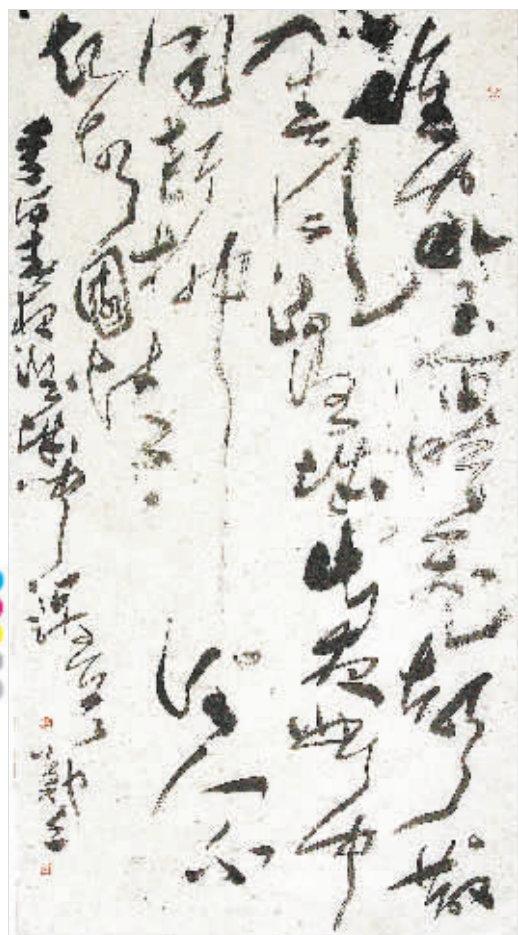 誰家玉笛暗飛聲散
入春風滿洛城此夜曲中
聞折柳何人不
起故園情
李白春夜洛城聞